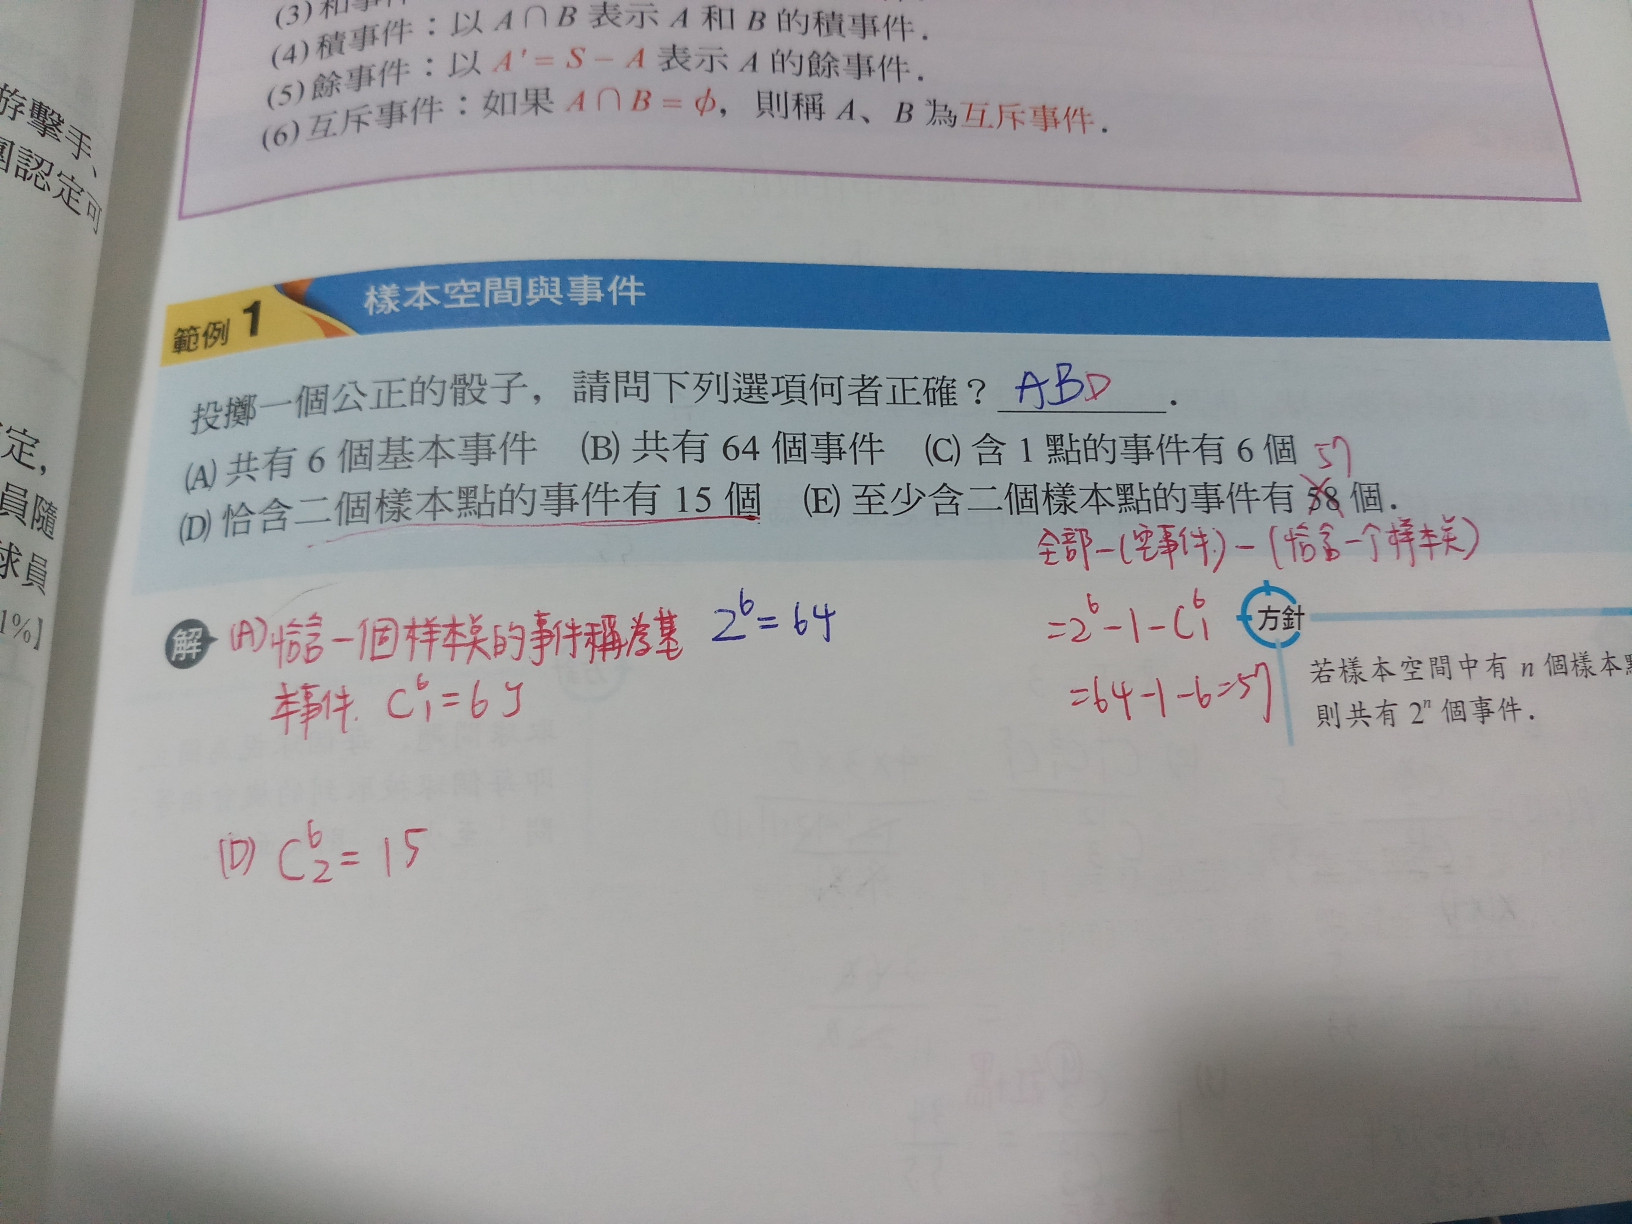 (3)和事件
(4)積事件：以 A∩B 表示 A 和 B 的積事件．
(5)餘事件：以 A' = S − A 表示 A 的餘事件．
(6)互斥事件：如果 A∩B = ϕ，則稱 A、B 為互斥事件．
游擊手、
認定可
定，
員隨
球員
1%】
範例 1 樣本空間與事件
投擲一個公正的骰子，請問下列選項何者正確？ ABD ．
(A) 共有 6 個基本事件 (B) 共有 64 個事件 (C) 含 1 點的事件有 6 個 57
(D) 恰含二個樣本點的事件有 15 個 (E) 至少含二個樣本點的事件有 58 個．
全部－(空事件)－(恰含一个样本点)
解 (A) 恰含一個样本点的事件稱為基 2⁶ = 64
本事件. C⁶₁ = 6
= 2⁶ − 1 − C⁶₁
= 64 − 1 − 6 = 57
方針
若樣本空間中有 n 個樣本點
則共有 2ⁿ 個事件．
(D) C⁶₂ = 15